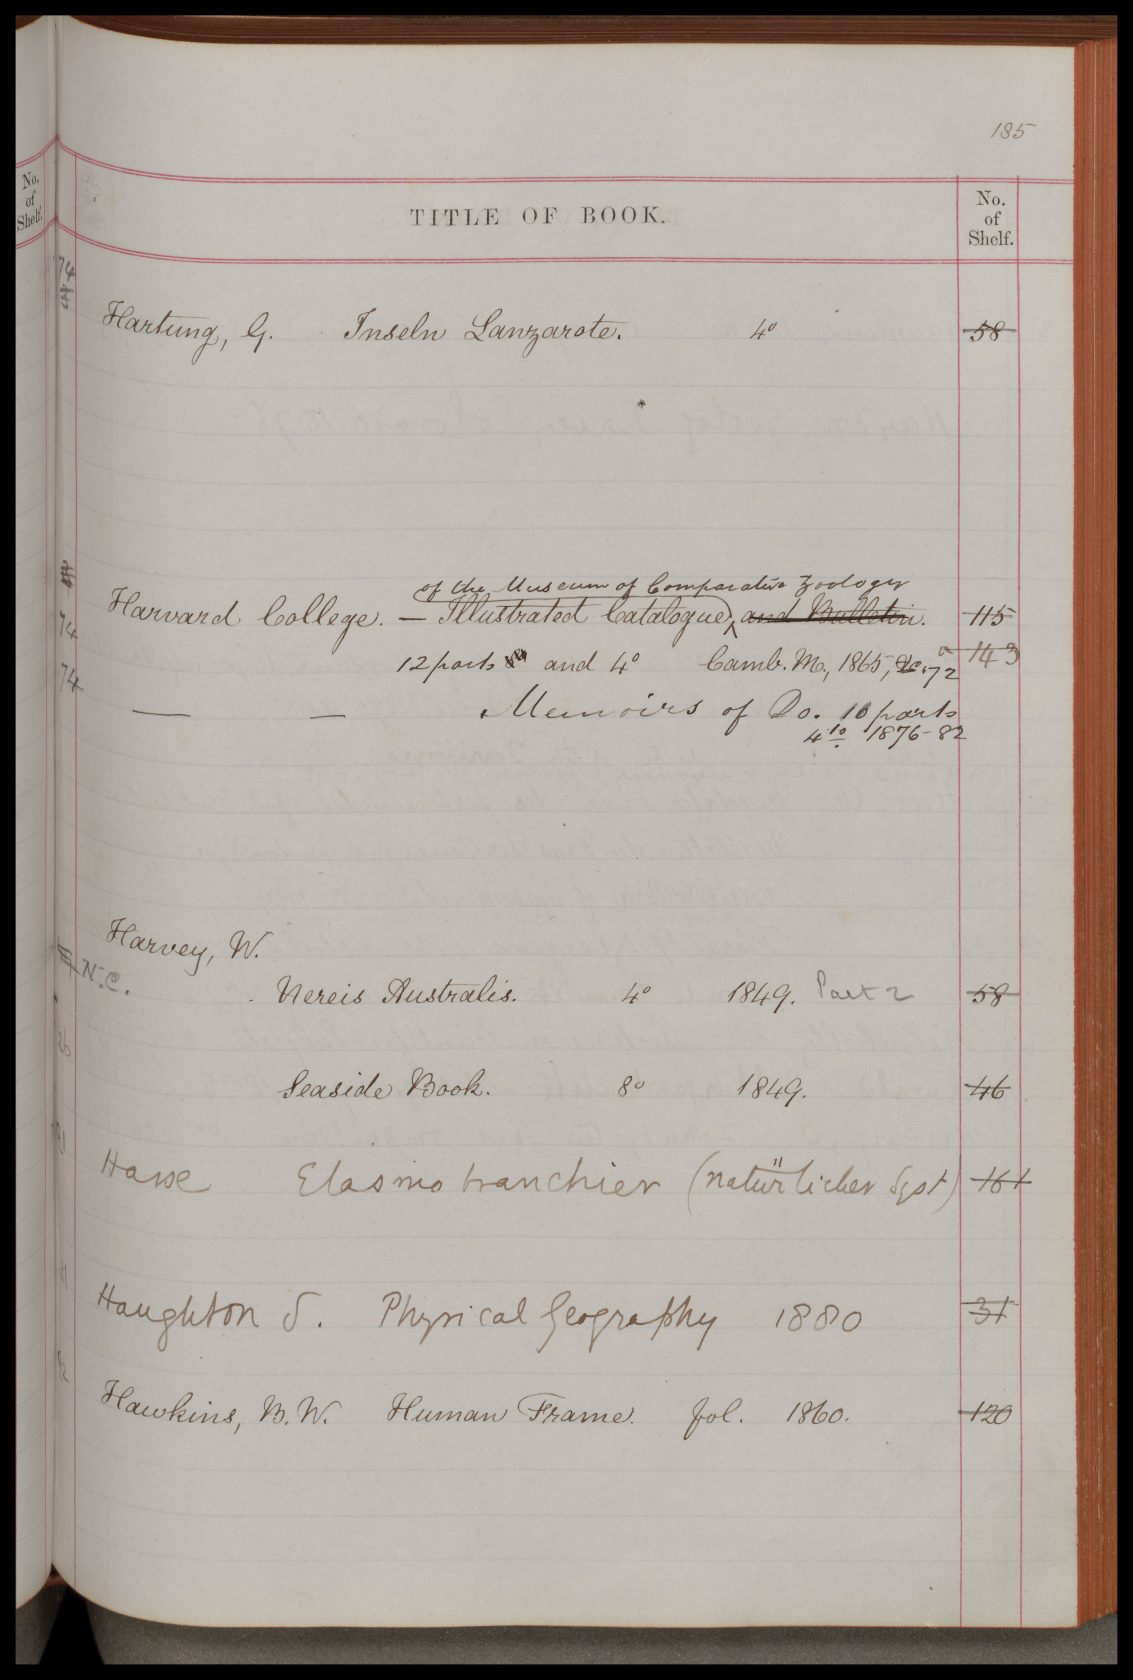 185
No.
of
Shelf.
TITLE OF BOOK.
No.
of
Shelf.
74
Hartung, G. Inseln Lanzarote. 4o 58
of the Museum of Comparative Zoology
Harvard College. — Illustrated Catalogue, and Bulletin. 115
74
12 parts and 4o Camb. M., 1865, &c. 72 143
74
— — Memoirs of Do. 10 parts
4to 1876-82
Harvey, W.
N.C.
Nereis Australis. 4o 1849. Part 2 58
26
Seaside Book. 8o 1849. 46
Hasse Elasmobranchier (natürlicher Syst) 161
Haughton S. Physical Geography 1880 31
Hawkins, B. W. Human Frame. fol. 1860. 120